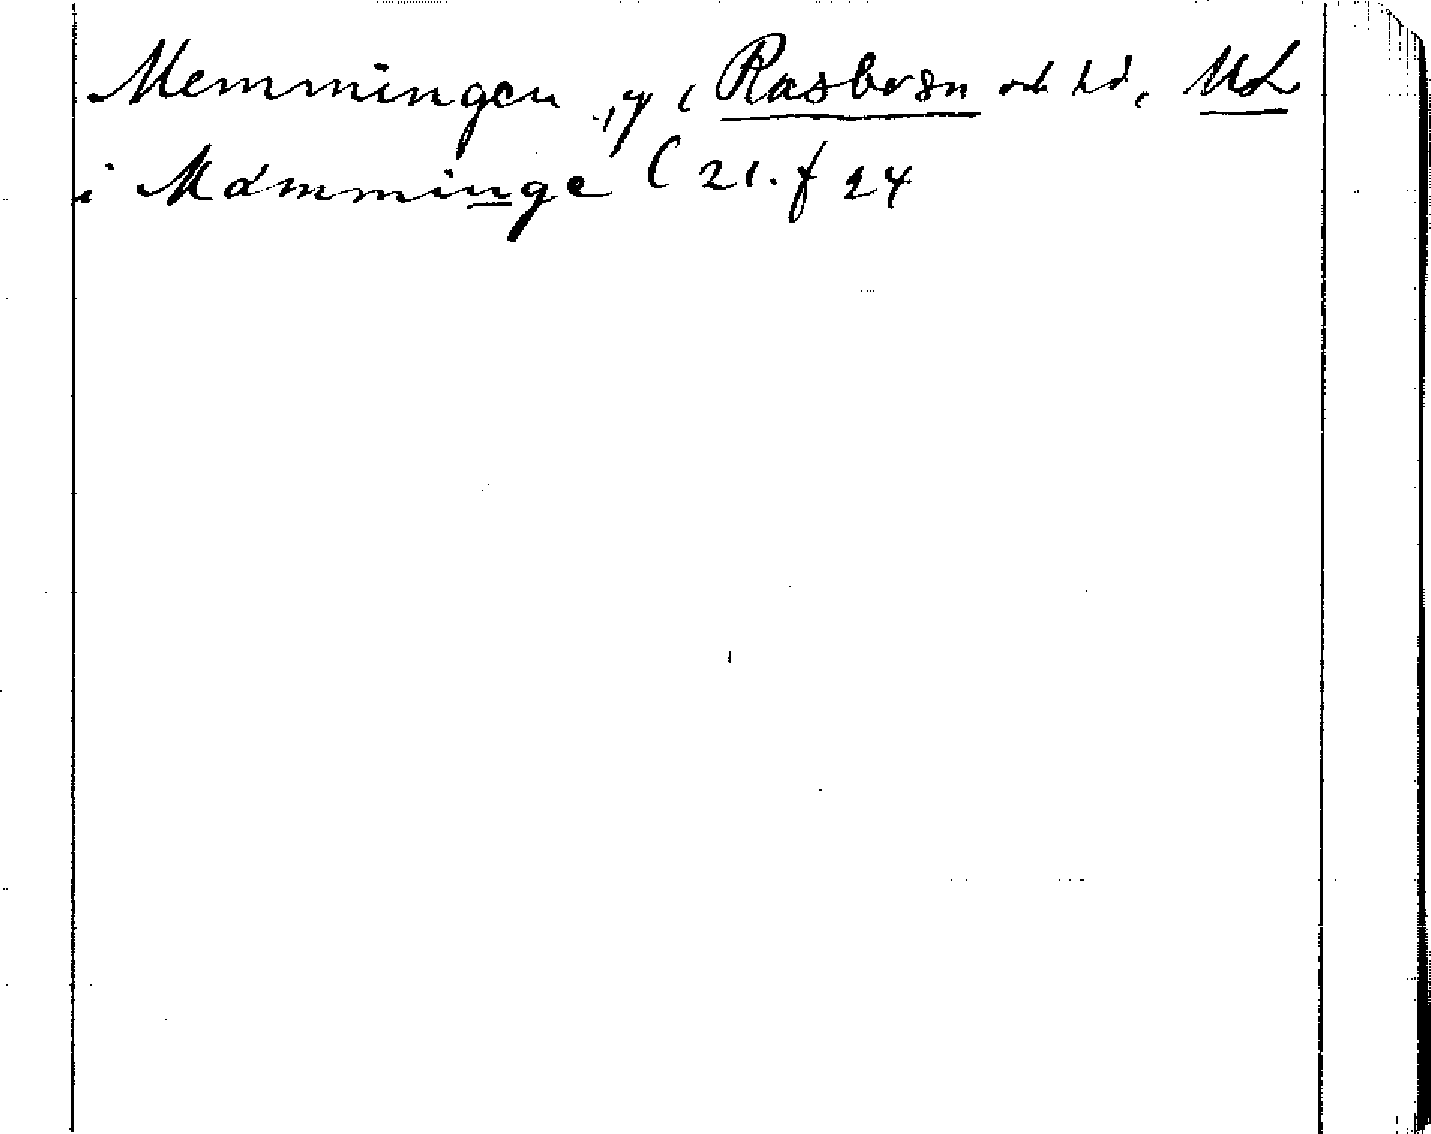 Memmingen, y i Rasbo sn och hd, Upl
i Mämminge (21. f 24